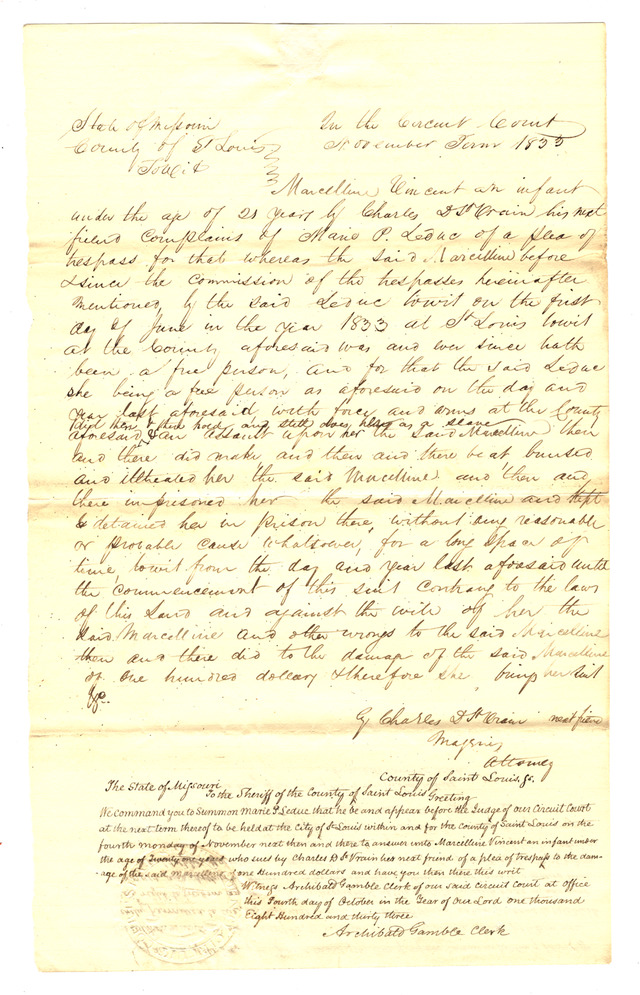 State of Missouri
County of St Louis
Towit
In the Circuit Court
November Term 1833
Marcelline Vincent an infant
under the age of 21 years by Charles D St Vrain his next
friend Complains of Marie P. Leduc of a plea of
trespass for that whereas the said Marcelline before
& since the commission of the trespasses hereinafter
mentioned, by the said Leduc towit on the first
day of June in the year 1833 at St Louis towit
at the County aforesaid was and ever since hath
been a free person, and for that the said Leduc
she being a free person as aforesaid on the day and
year last aforesaid, with force and arms at the County
did then & there hold, and still does, her as a slave
aforesaid & an assault upon her the said Marcelline then
and there did make and then and there beat, bruised
and illtreated her the said Marcelline and then and
there imprisoned her the said Marcelline and kept
& detained her in prison there, without any reasonable
or probable cause whatsoever, for a long space of
time, towit from the day and year last aforesaid until
the commencement of this suit contrary to the laws
of this Land and against the will of her the
said Marcelline and other wrongs to the said Marcelline
then and there did to the damage of the said Marcelline
of one hundred dollars & therefore she brings her suit
&c.
By Charles D St Vrain next friend
Attorney
The State of Missouri
County of Saint Louis, ss.
To the Sheriff of the County of Saint Louis Greeting
We command you to Summon Marie P Leduc that he be and appear before the Judge of our Circuit Court
at the next term thereof to be held at the City of St Louis within and for the County of Saint Louis on the
fourth monday of November next then and there to answer unto Marcelline Vincent an infant under
the age of Twenty one years who sues by Charles D St Vrain his next friend of a plea of Trespass to the dam-
age of the said Marcelline of one Hundred dollars and have you then there this writ
Witness Archibald Gamble Clerk of our said Circuit Court at office
this Fourth day of October in the Year of our Lord one thousand
Eight Hundred and thirty three
Archibald Gamble Clerk